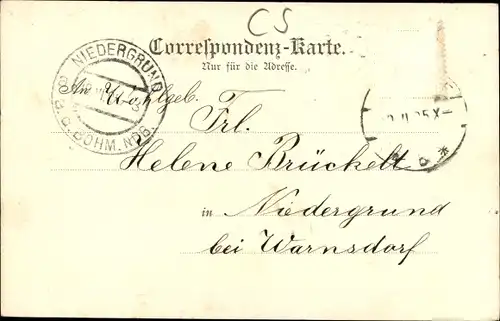 CS
Correspondenz-Karte.
Nur für die Adresse.
NIEDERGRUND
BÖHM. NDB.
An Wohlgeb.
Frl.
Helene Brückelt
in Niedergrund
bei Warnsdorf